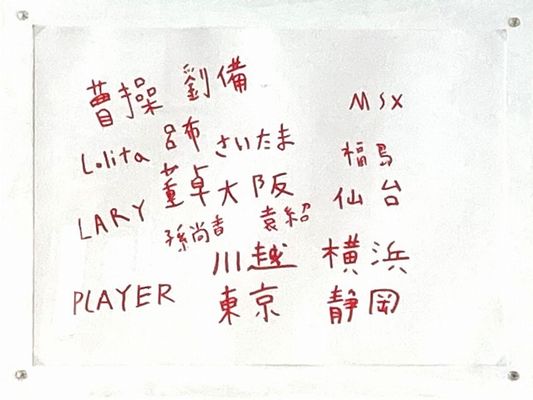 曹操 劉備 MSX
Lolita 呂布 さいたま 福島
LARY 董卓 大阪 仙台
孫尚香 袁紹
川越 横浜
PLAYER 東京 静岡